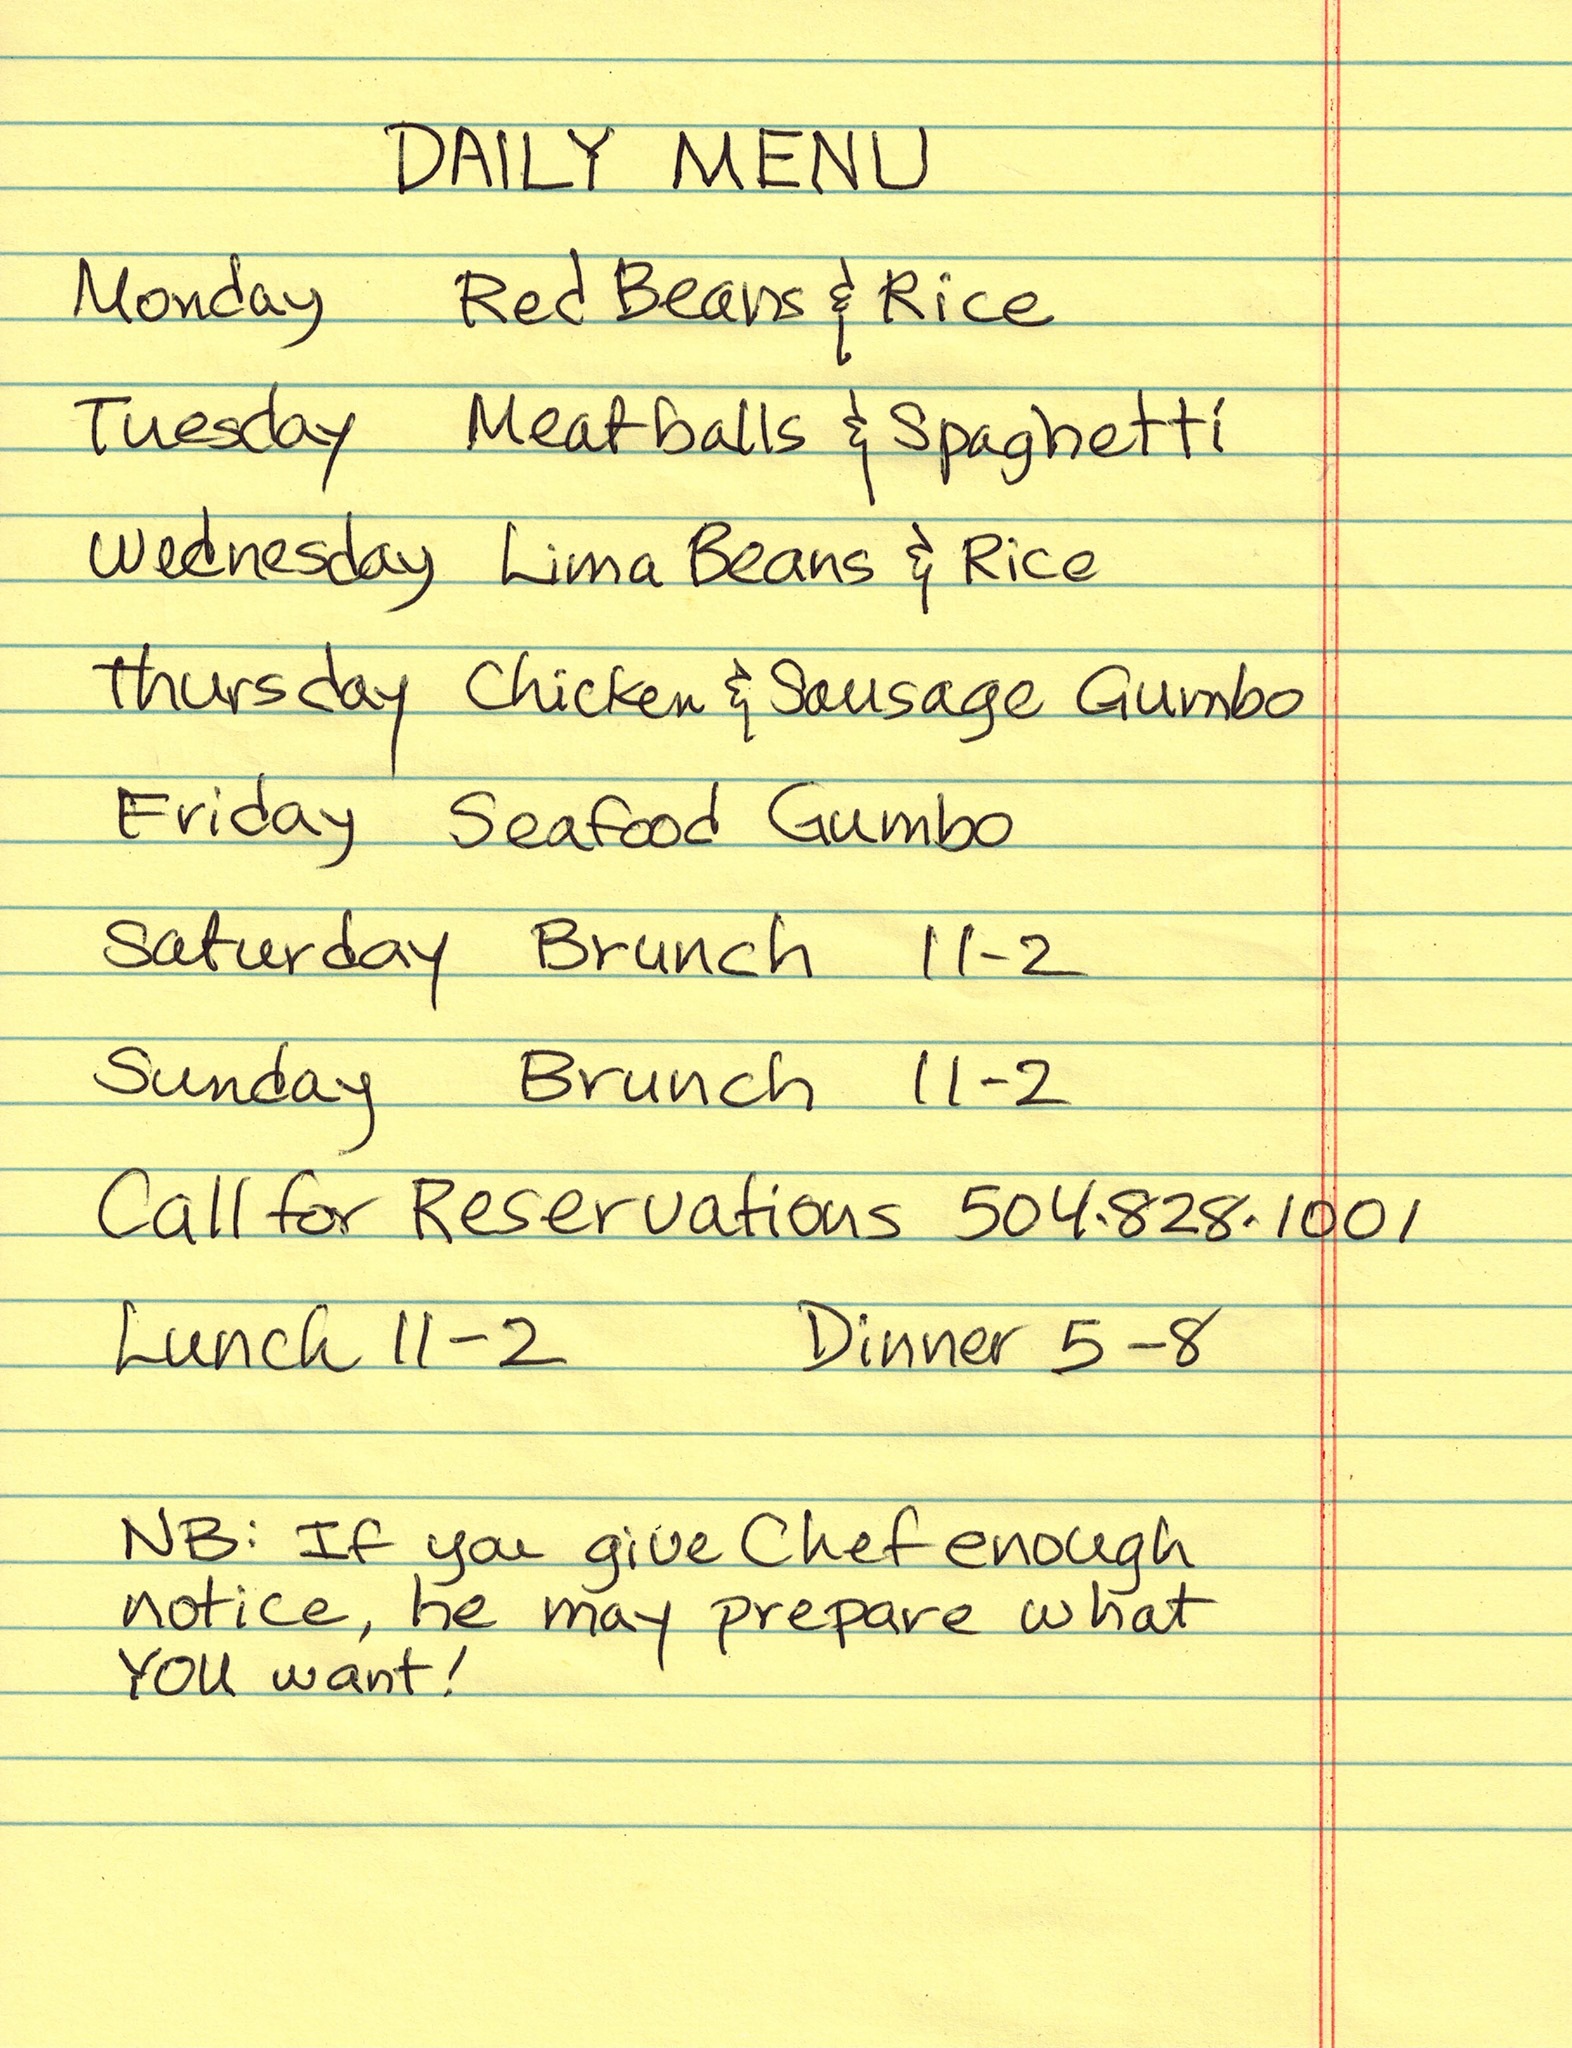 DAILY MENU
Monday Red Beans & Rice
Tuesday Meatballs & Spaghetti
Wednesday Lima Beans & Rice
Thursday Chicken & Sausage Gumbo
Friday Seafood Gumbo
Saturday Brunch 11-2
Sunday Brunch 11-2
Call for Reservations 504.828.1001
Lunch 11-2 Dinner 5-8
NB: If you give Chef enough
notice, he may prepare what
YOU want!